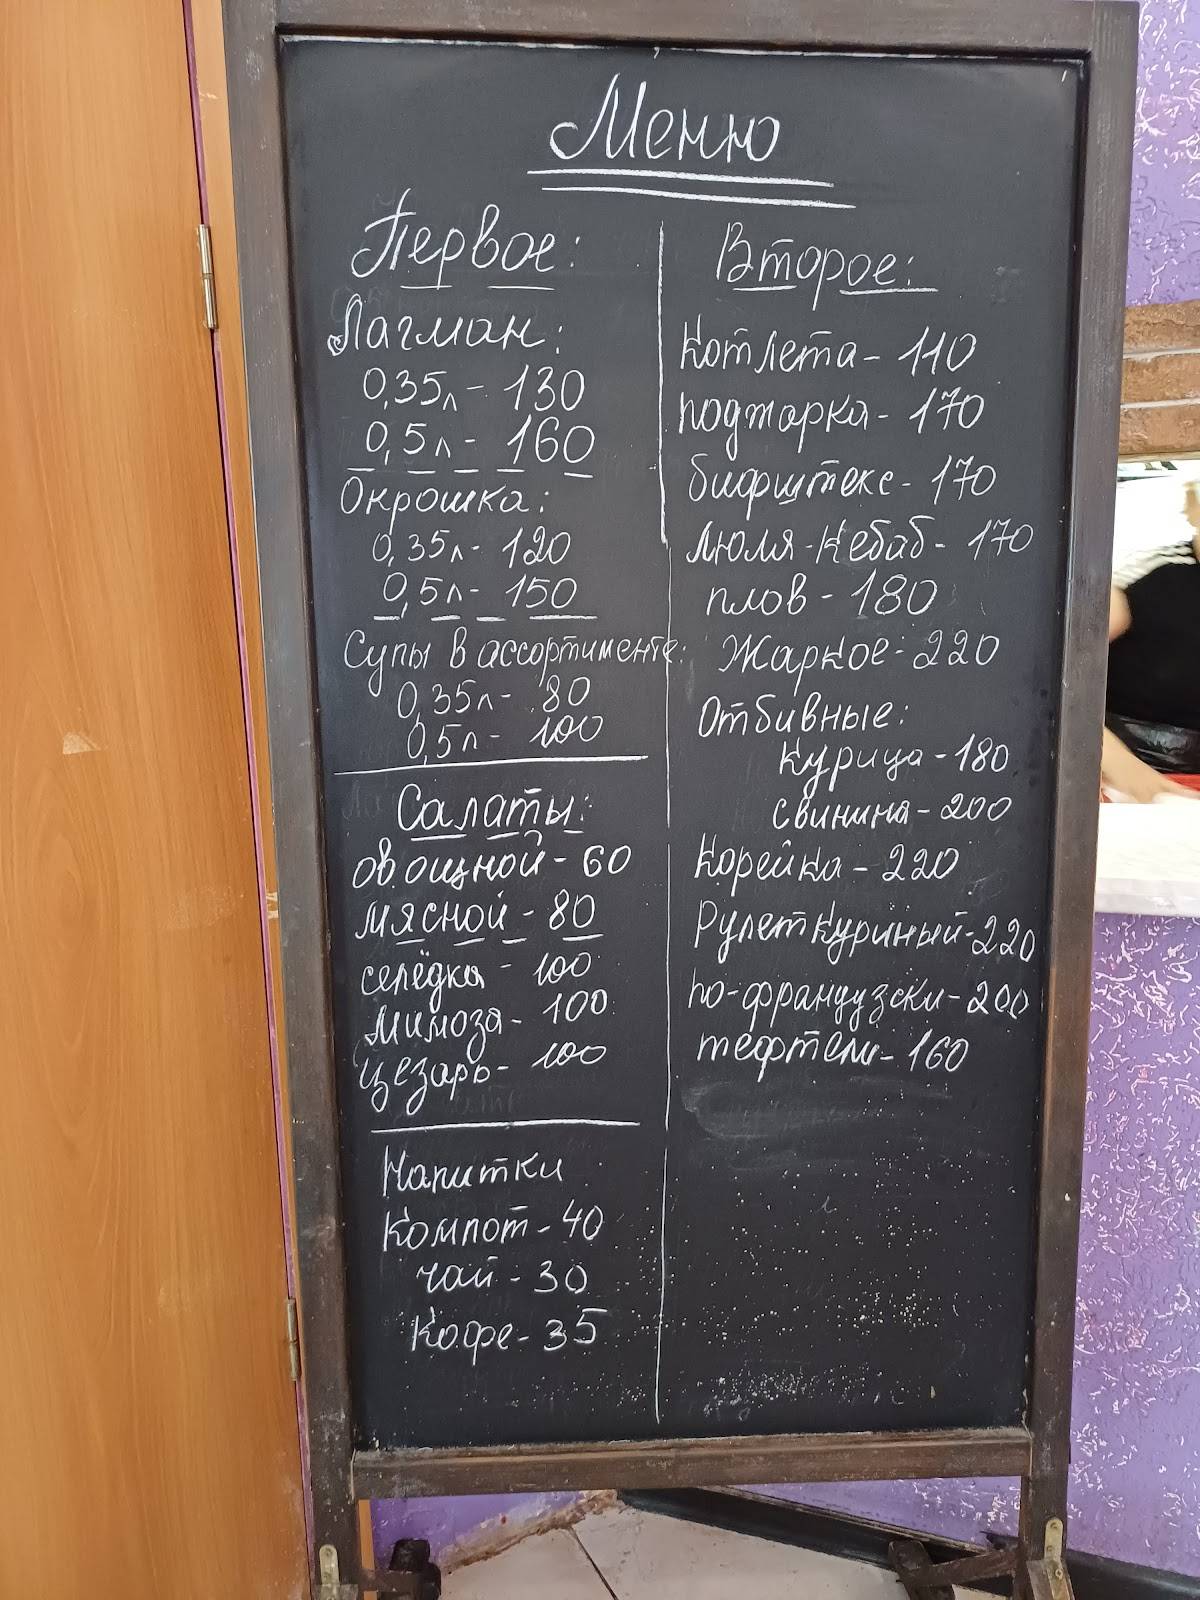 Меню
Первое:
Лагман:
0,35л - 130
0,5л - 160
Окрошка:
0,35л - 120
0,5л - 150
Супы в ассортименте:
0,35л - 80
0,5л - 100
Салаты:
овощной - 60
мясной - 80
селёдка - 100
мимоза - 100
цезарь - 100
Напитки
Компот - 40
чай - 30
Кофе - 35
Второе:
Котлета - 110
поджарка - 170
бифштекс - 170
люля-кебаб - 170
плов - 180
Жаркое - 220
Отбивные:
курица - 180
свинина - 200
Корейка - 220
Рулет куриный - 220
по-французски - 200
тефтели - 160